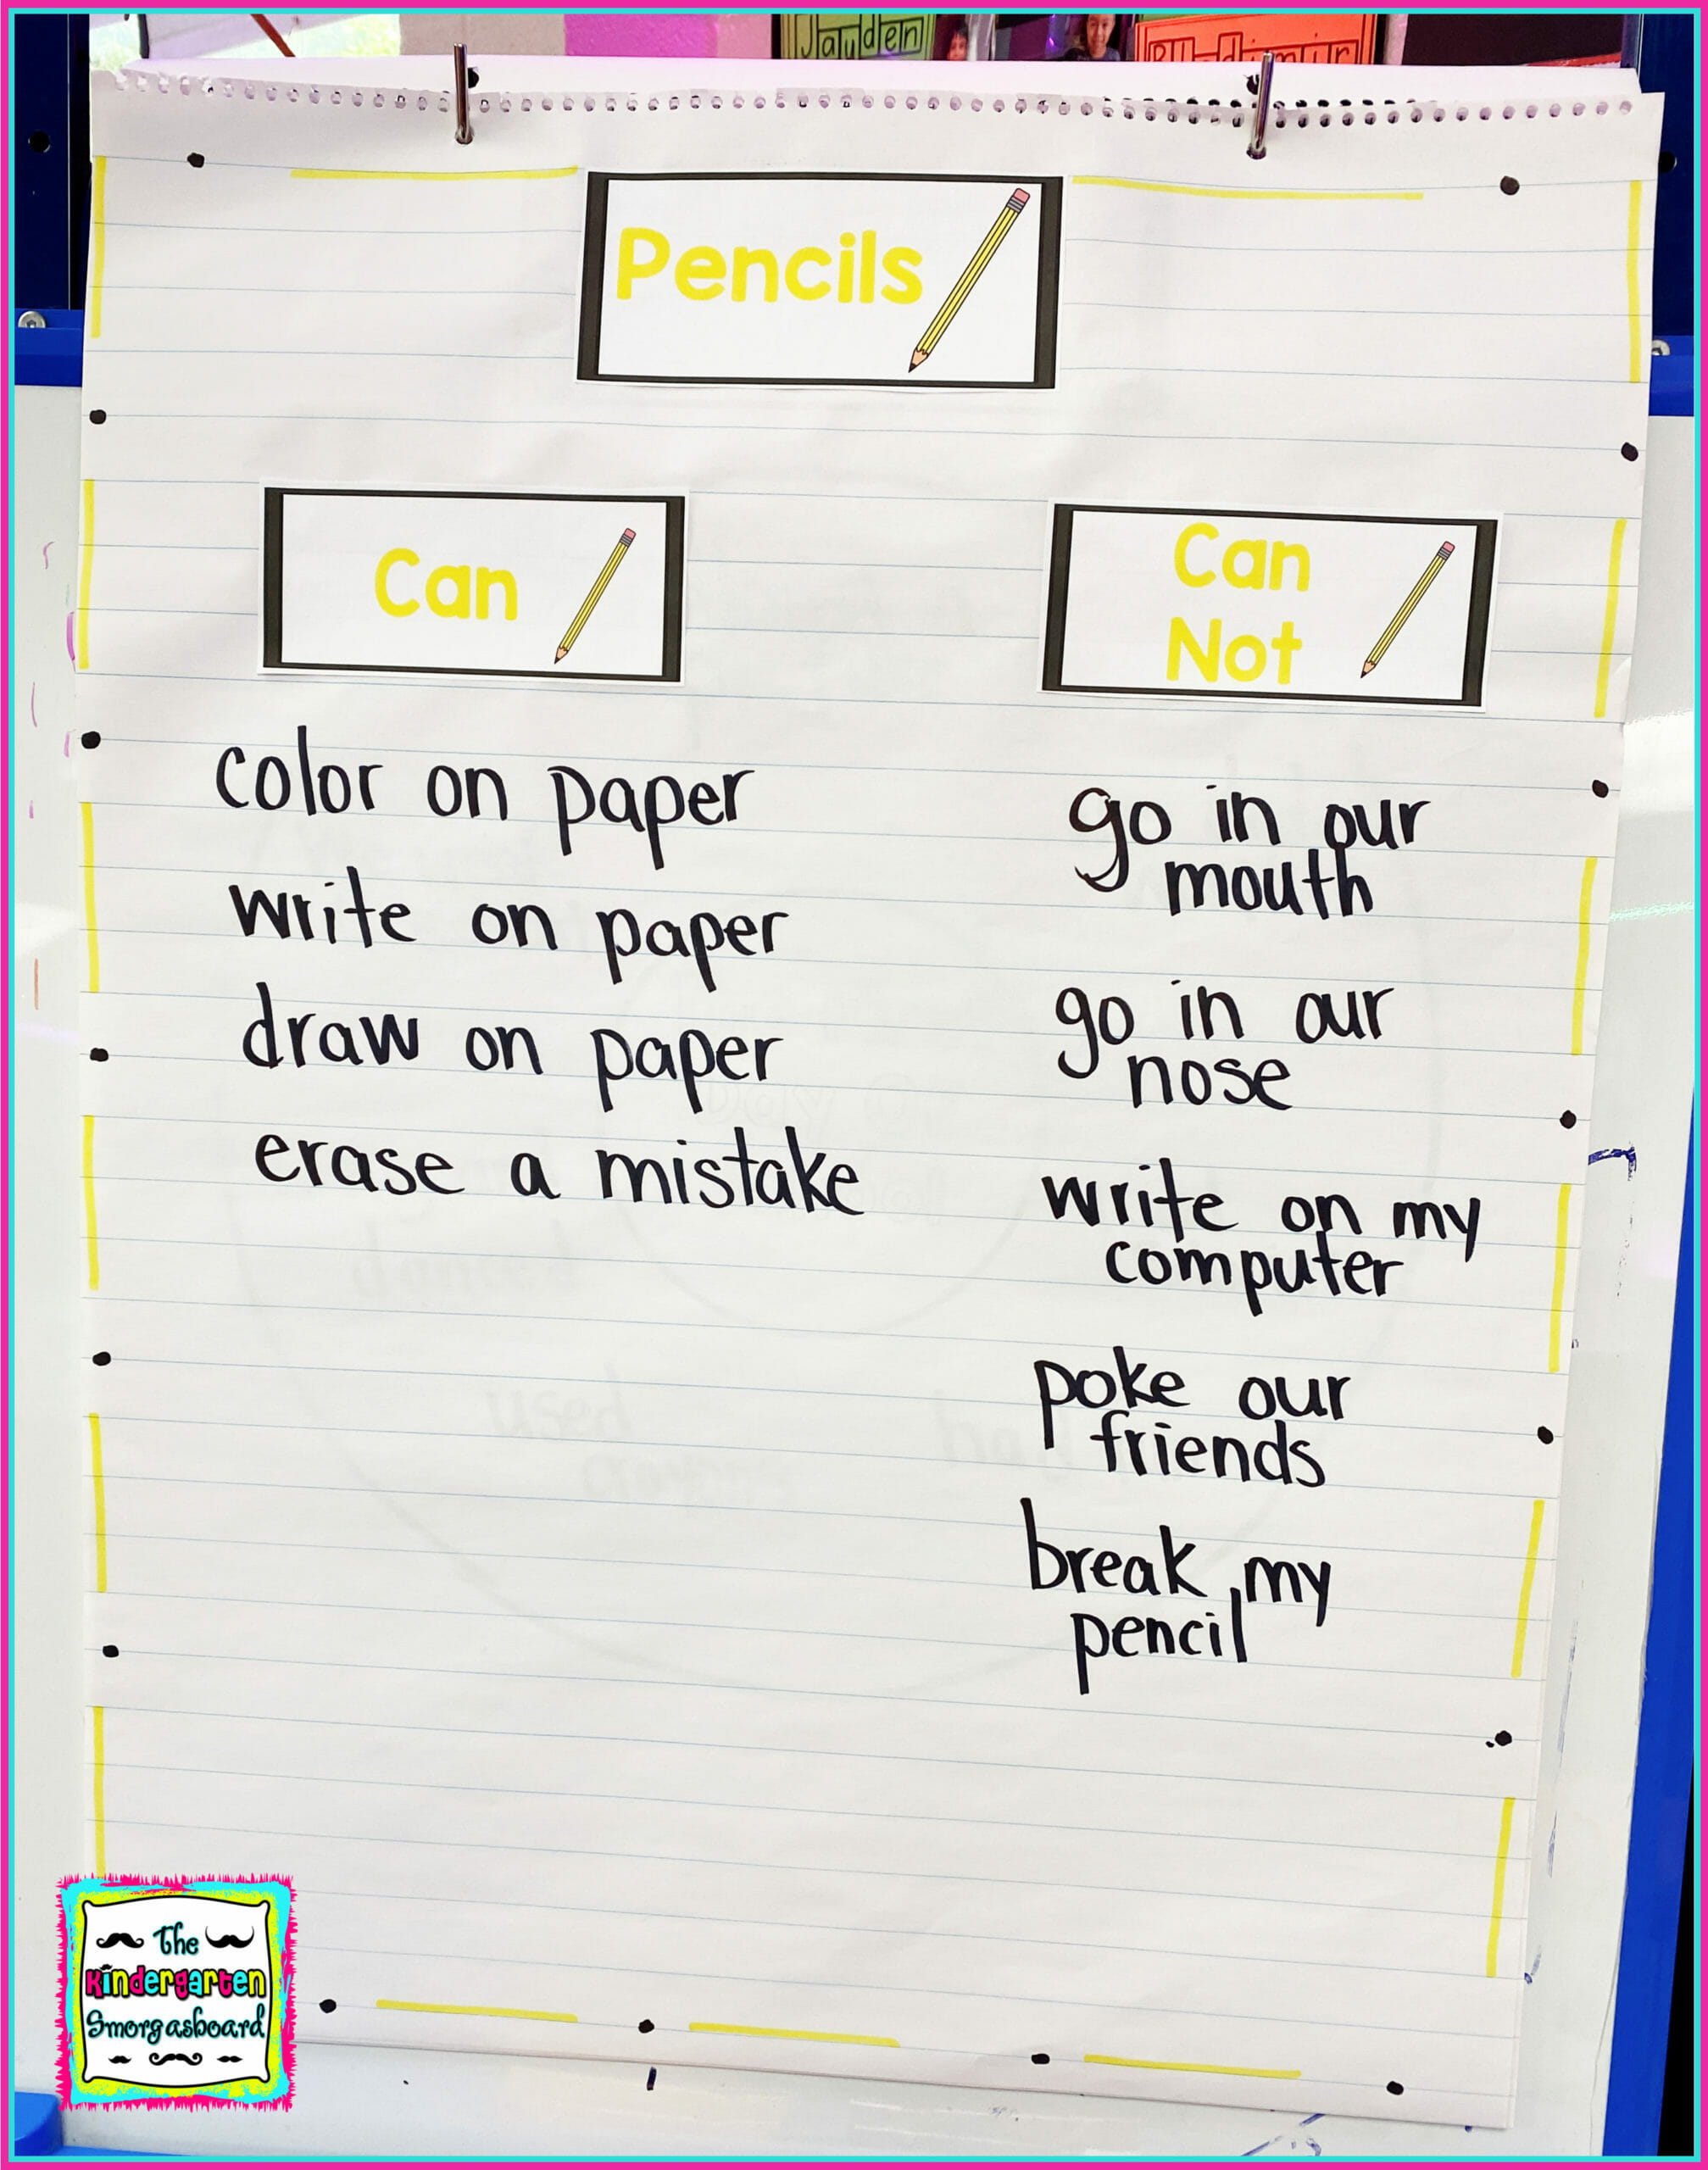 Jayden
Pencils
Can
Can
Not
color on paper
write on paper
draw on paper
erase a mistake
go in our
mouth
go in our
nose
write on my
computer
poke our
friends
break my
pencil
The
Kindergarten
Smorgasboard